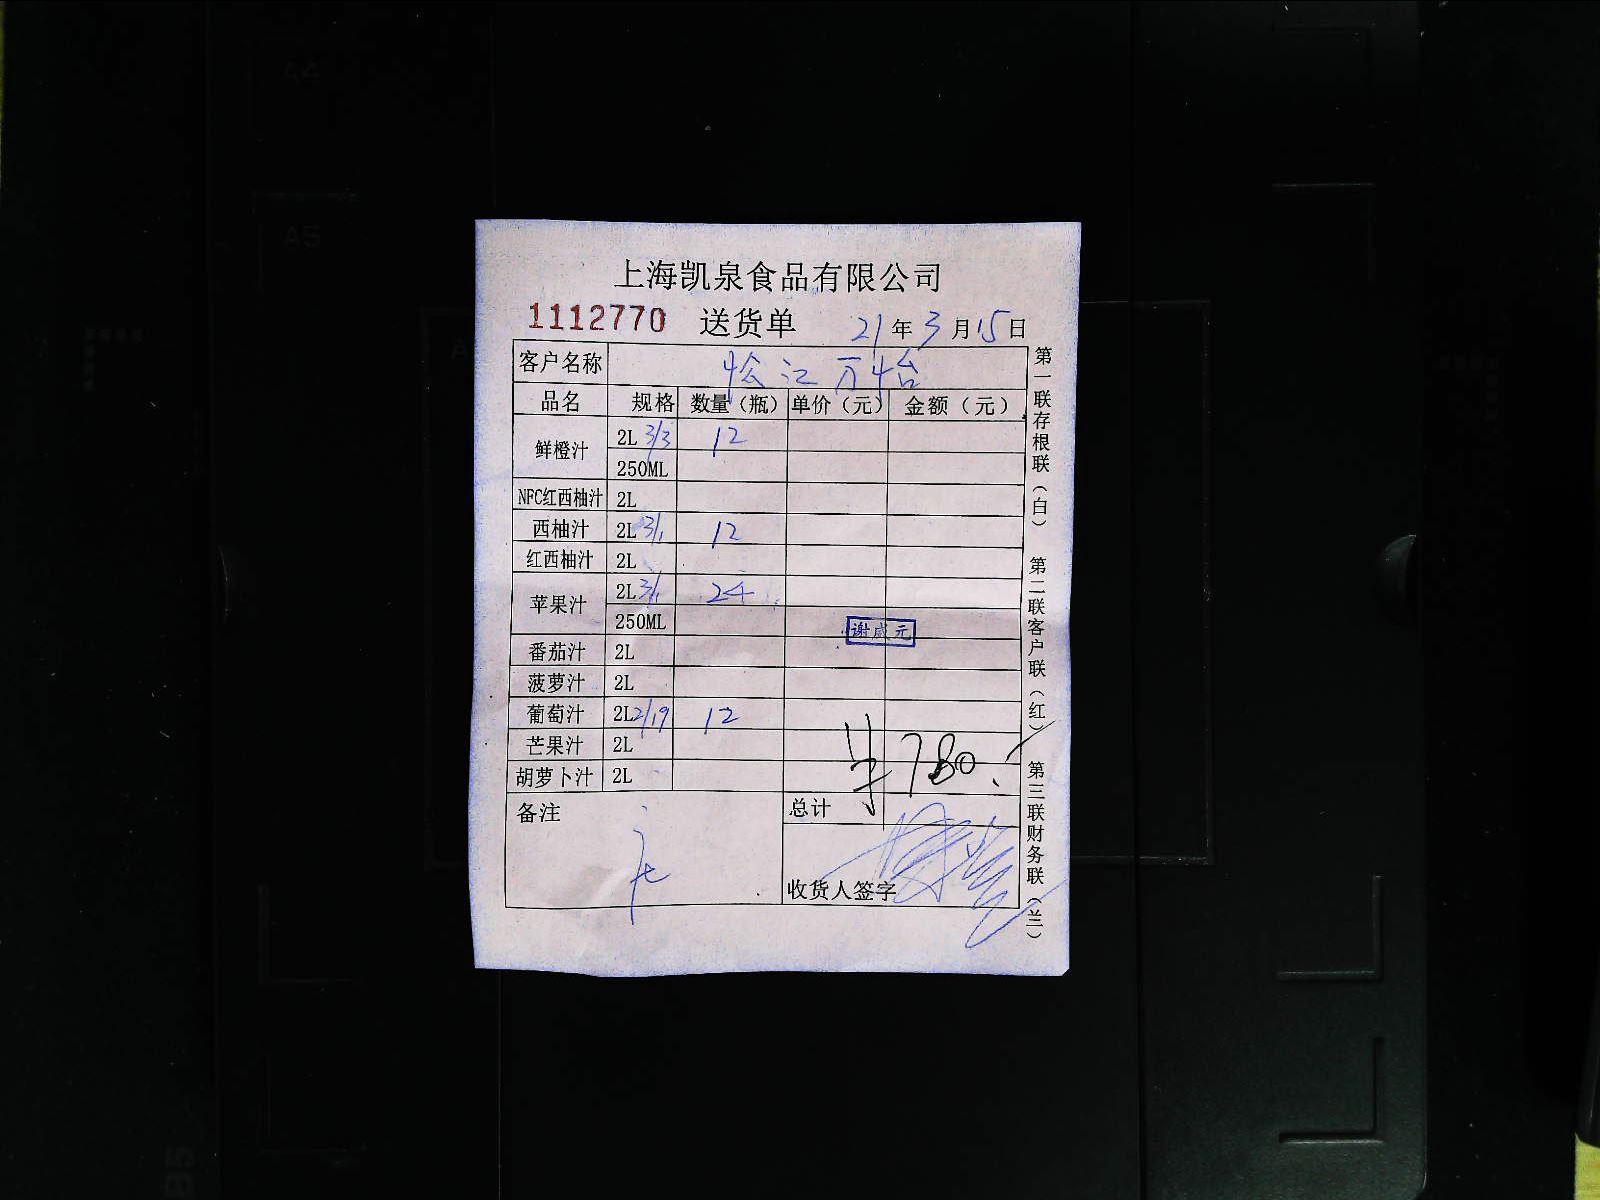 上海凯泉食品有限公司
1112770 送货单 21年3月15日
客户名称 松江万怡
品名 规格 数量（瓶） 单价（元） 金额（元）
鲜橙汁 2L 3/3 12
250ML
NFC红西柚汁 2L
西柚汁 2L 3/1 12
红西柚汁 2L
苹果汁 2L 3/1 24
250ML
谢咸元
番茄汁 2L
菠萝汁 2L
葡萄汁 2L 2/19 12
芒果汁 2L
胡萝卜汁 2L
¥780.
备注 总计
收货人签字
第一联存根联（白） 第二联客户联（红） 第三联财务联（兰）
A4
A5
B5